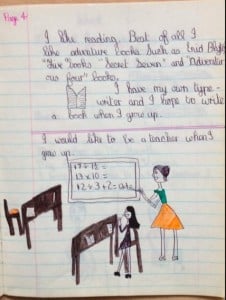 Page 4.
I like reading. Best of all I
like adventure books. Such as Enid Blyto
"Five" books "Secret Seven" and "Adventur
ous four" books.
I have my own type-
writer and I hope to write
a book when I grow up.
I would like to be a teacher when I
grow up.
13 x 10 =